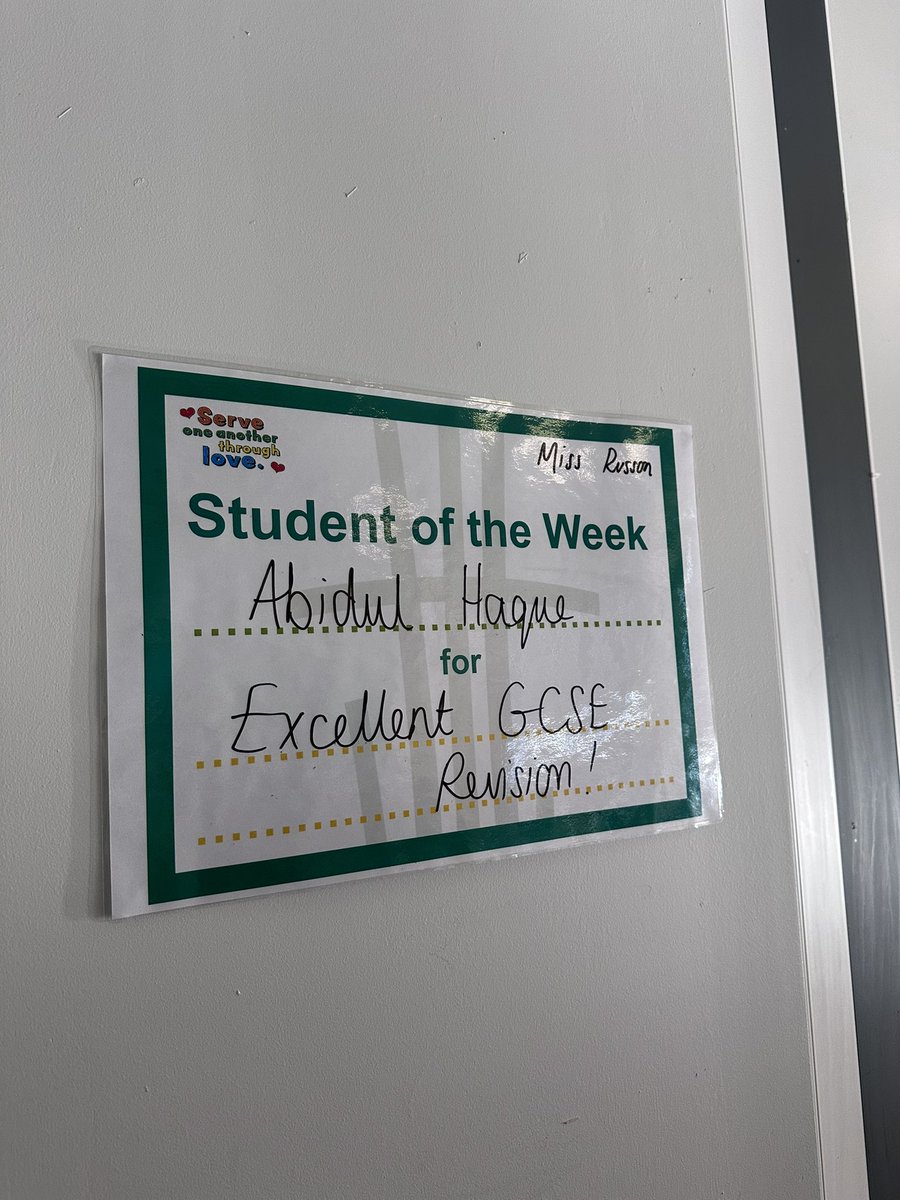 Serve
one another
through
love.
Miss Russon
Student of the Week
Abidul Haque
for
Excellent GCSE
Revision!